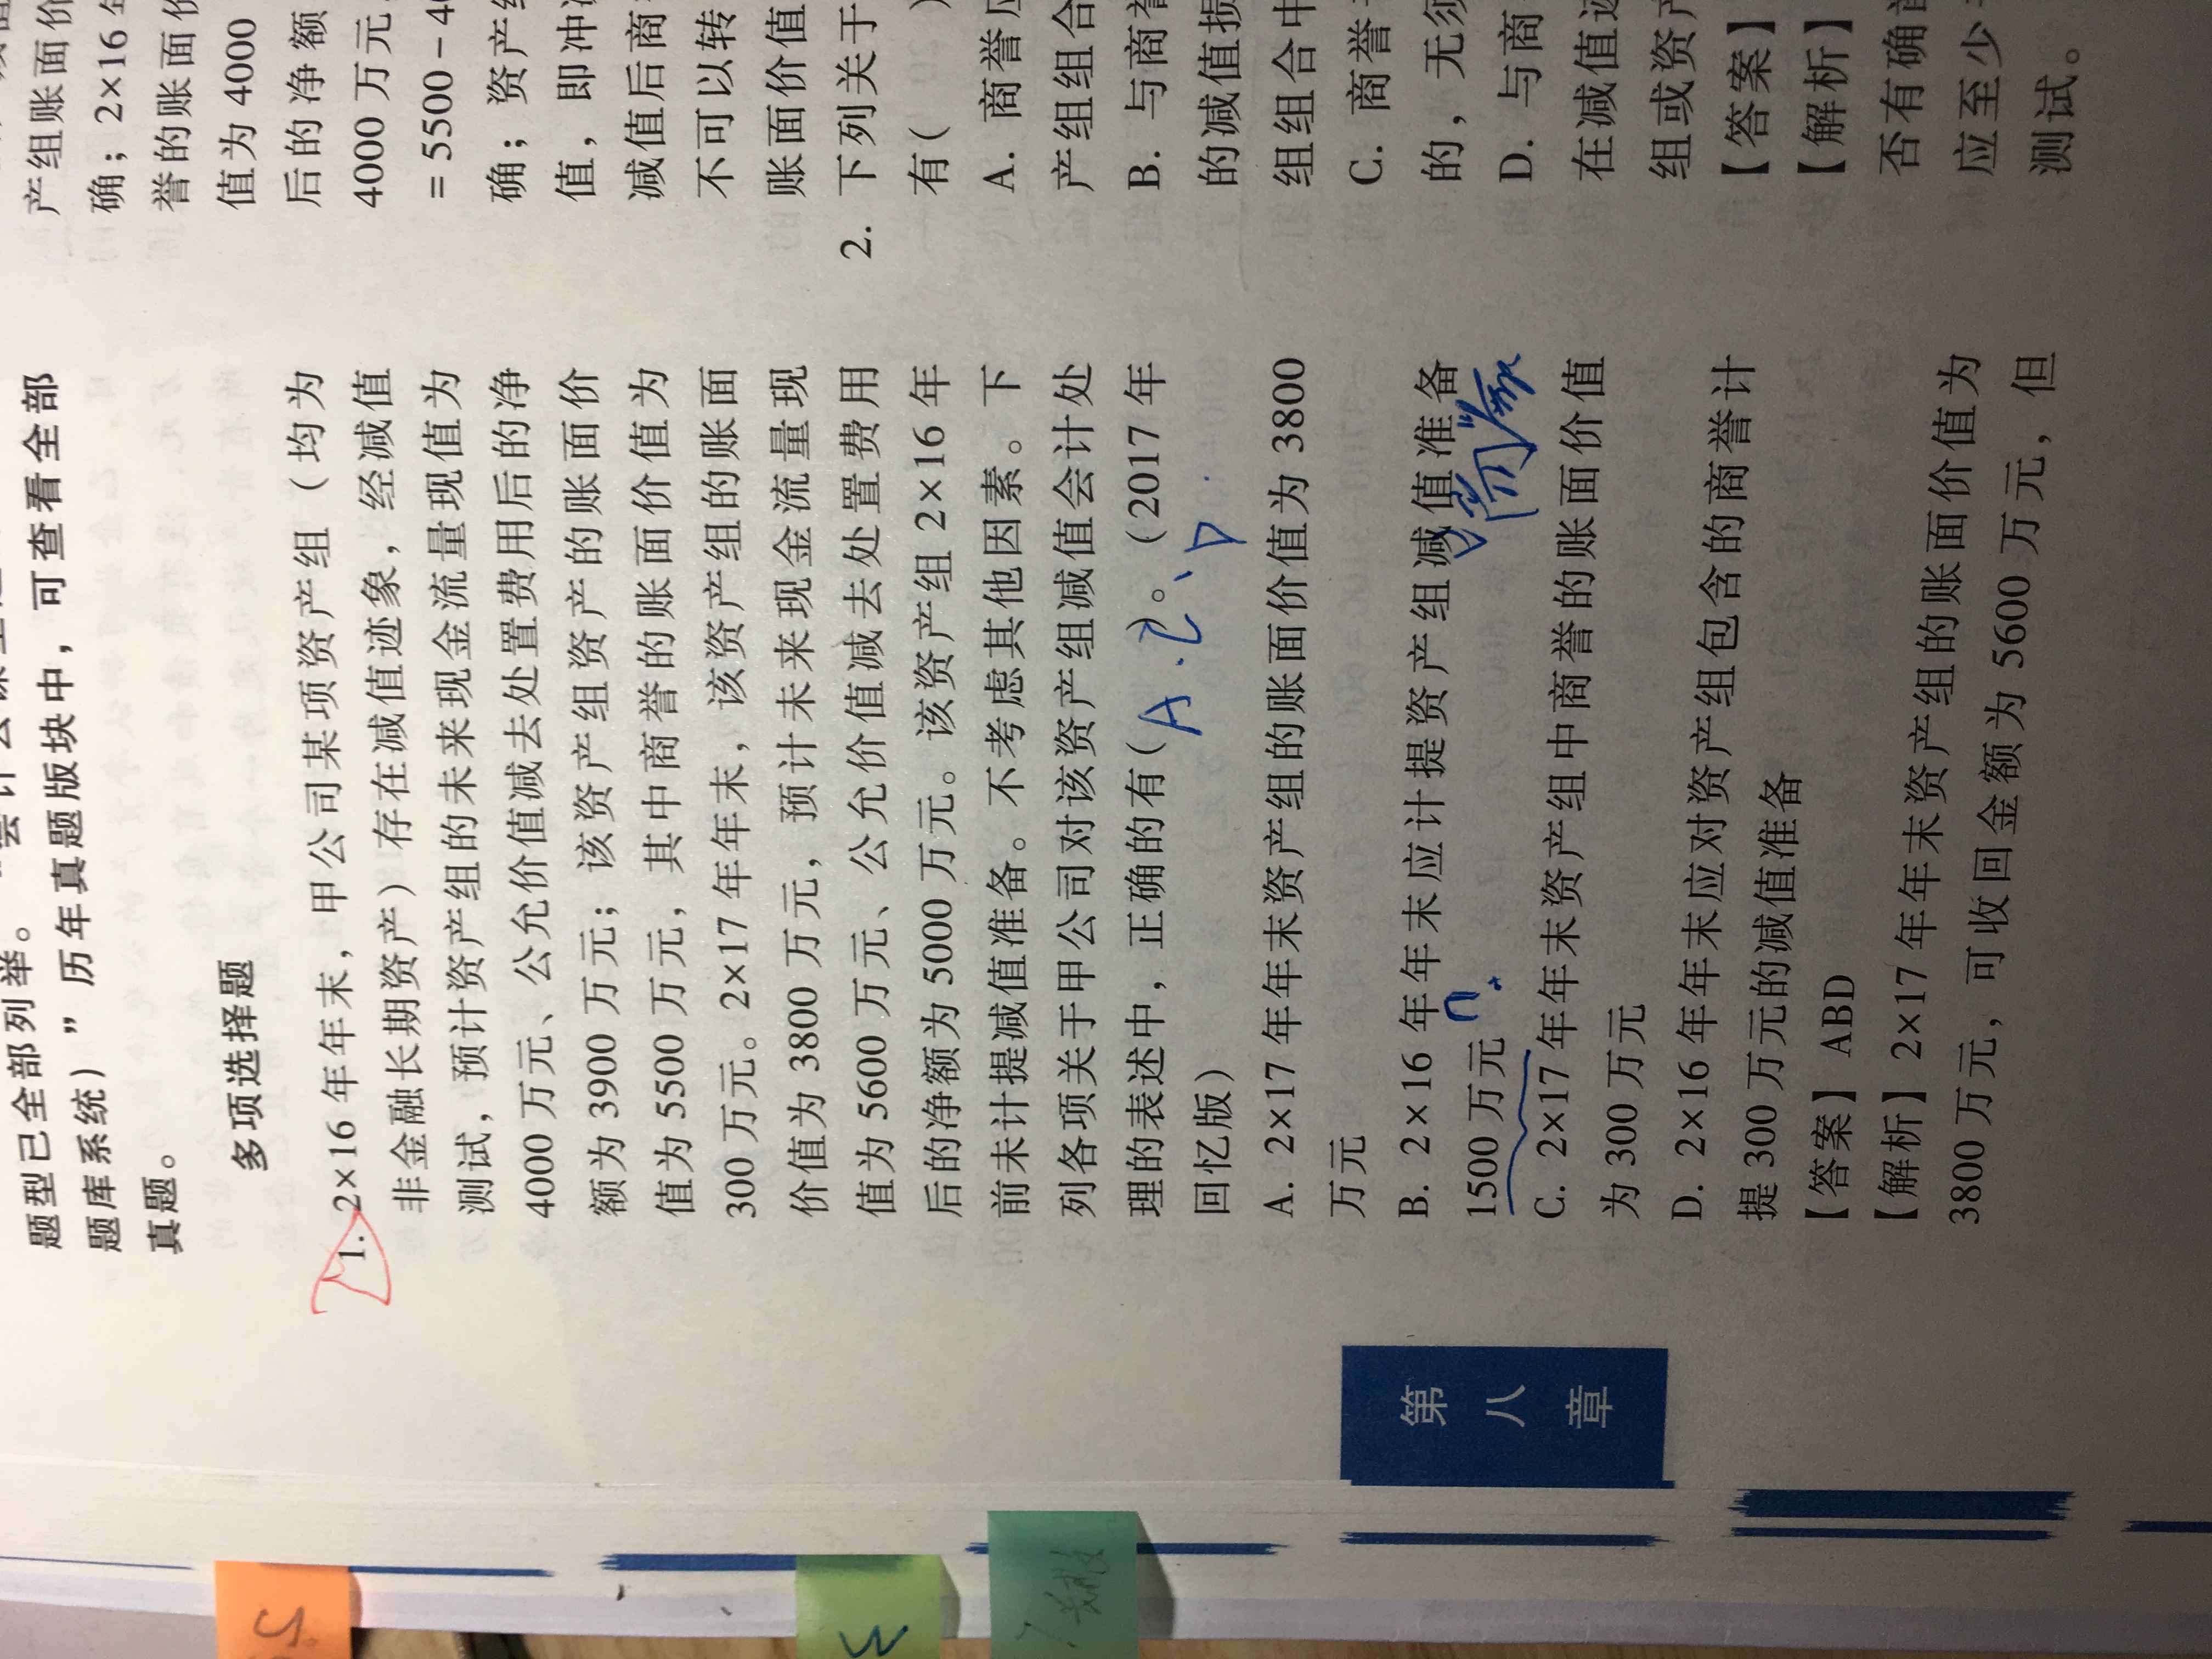 题型已全部列举。
题库系统）”历年真题版块中，可查看全部
真题。
多项选择题
1. 2×16 年年末，甲公司某项资产组（均为
非金融长期资产）存在减值迹象，经减值
测试，预计资产组的未来现金流量现值为
4000 万元、公允价值减去处置费用后的净
额为 3900 万元；该资产组资产的账面价
值为 5500 万元，其中商誉的账面价值为
300 万元。2×17 年年末，该资产组的账面
价值为 3800 万元，预计未来现金流量现
值为 5600 万元、公允价值减去处置费用
后的净额为 5000 万元。该资产组 2×16 年
前未计提减值准备。不考虑其他因素。下
列各项关于甲公司对该资产组减值会计处
理的表述中，正确的有（ A.C、D ）。（2017 年
回忆版）
A. 2×17 年年末资产组的账面价值为 3800
万元
B. 2×16 年年末应计提资产组减值准备
1500 万元
C. 2×17 年年末资产组中商誉的账面价值
为 300 万元
D. 2×16 年年末应对资产组包含的商誉计
提 300 万元的减值准备
【答案】ABD
【解析】2×17 年年末资产组的账面价值为
3800 万元，可收回金额为 5600 万元，但
产组账面价
确；2×16
誉的账面价
值为 4000
后的净额
4000 万元
= 5500 - 4
确；资产组
值，即冲
减值后商
不可以转
账面价值
2. 下列关于
有（ ）
A. 商誉应
产组组合
B. 与商誉
的减值损
组组合中
C. 商誉
的，无须
D. 与商
在减值
组或资产
【答案】
【解析】
否有确
应至少
测试。
第
八
章
5
3